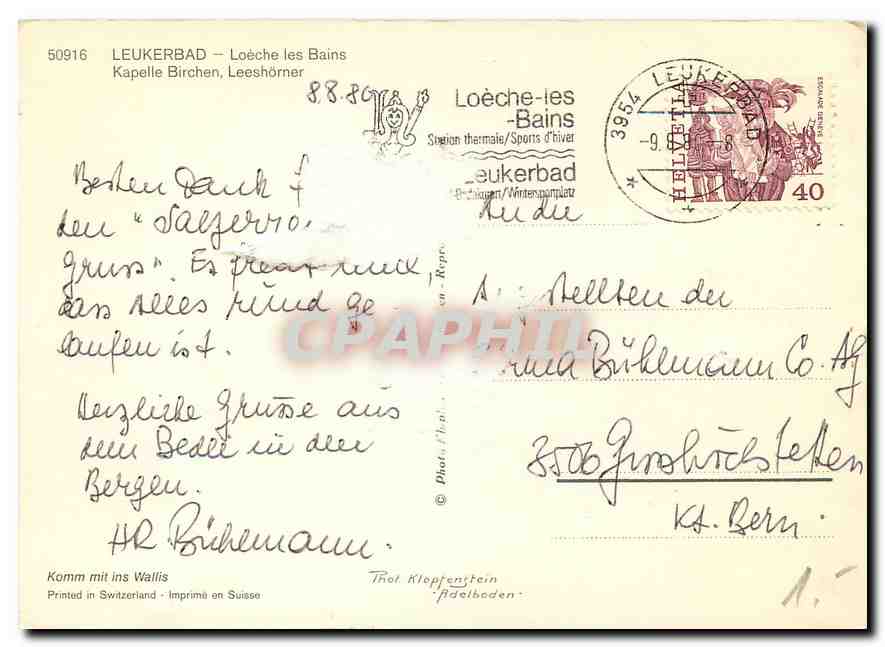 50916 LEUKERBAD – Loèche les Bains
Kapelle Birchen, Leeshörner
8.8.80
Loèche-les
-Bains
Station thermale/Sports d'hiver
Leukerbad
3954 LEUKERBAD
-9.8.80 8
HELVETIA
ESCALADE GENÈVE
40
Besten Dank f
den "Salzerro
Gruss". Es freut mich,
dass Alles rund ge
laufen ist.
Herzliche Grüsse aus
dem Bedli in den
Bergen.
HR Bühlmann.
An die
Angestellten der
Firma Bühlmann Co. AG
3506 Grosshöchstetten
Kt. Bern
CPAPHIL
© Photo
Komm mit ins Wallis
Printed in Switzerland - Imprimé en Suisse
Phot. Klopfenstein
-Adelboden-
1.-